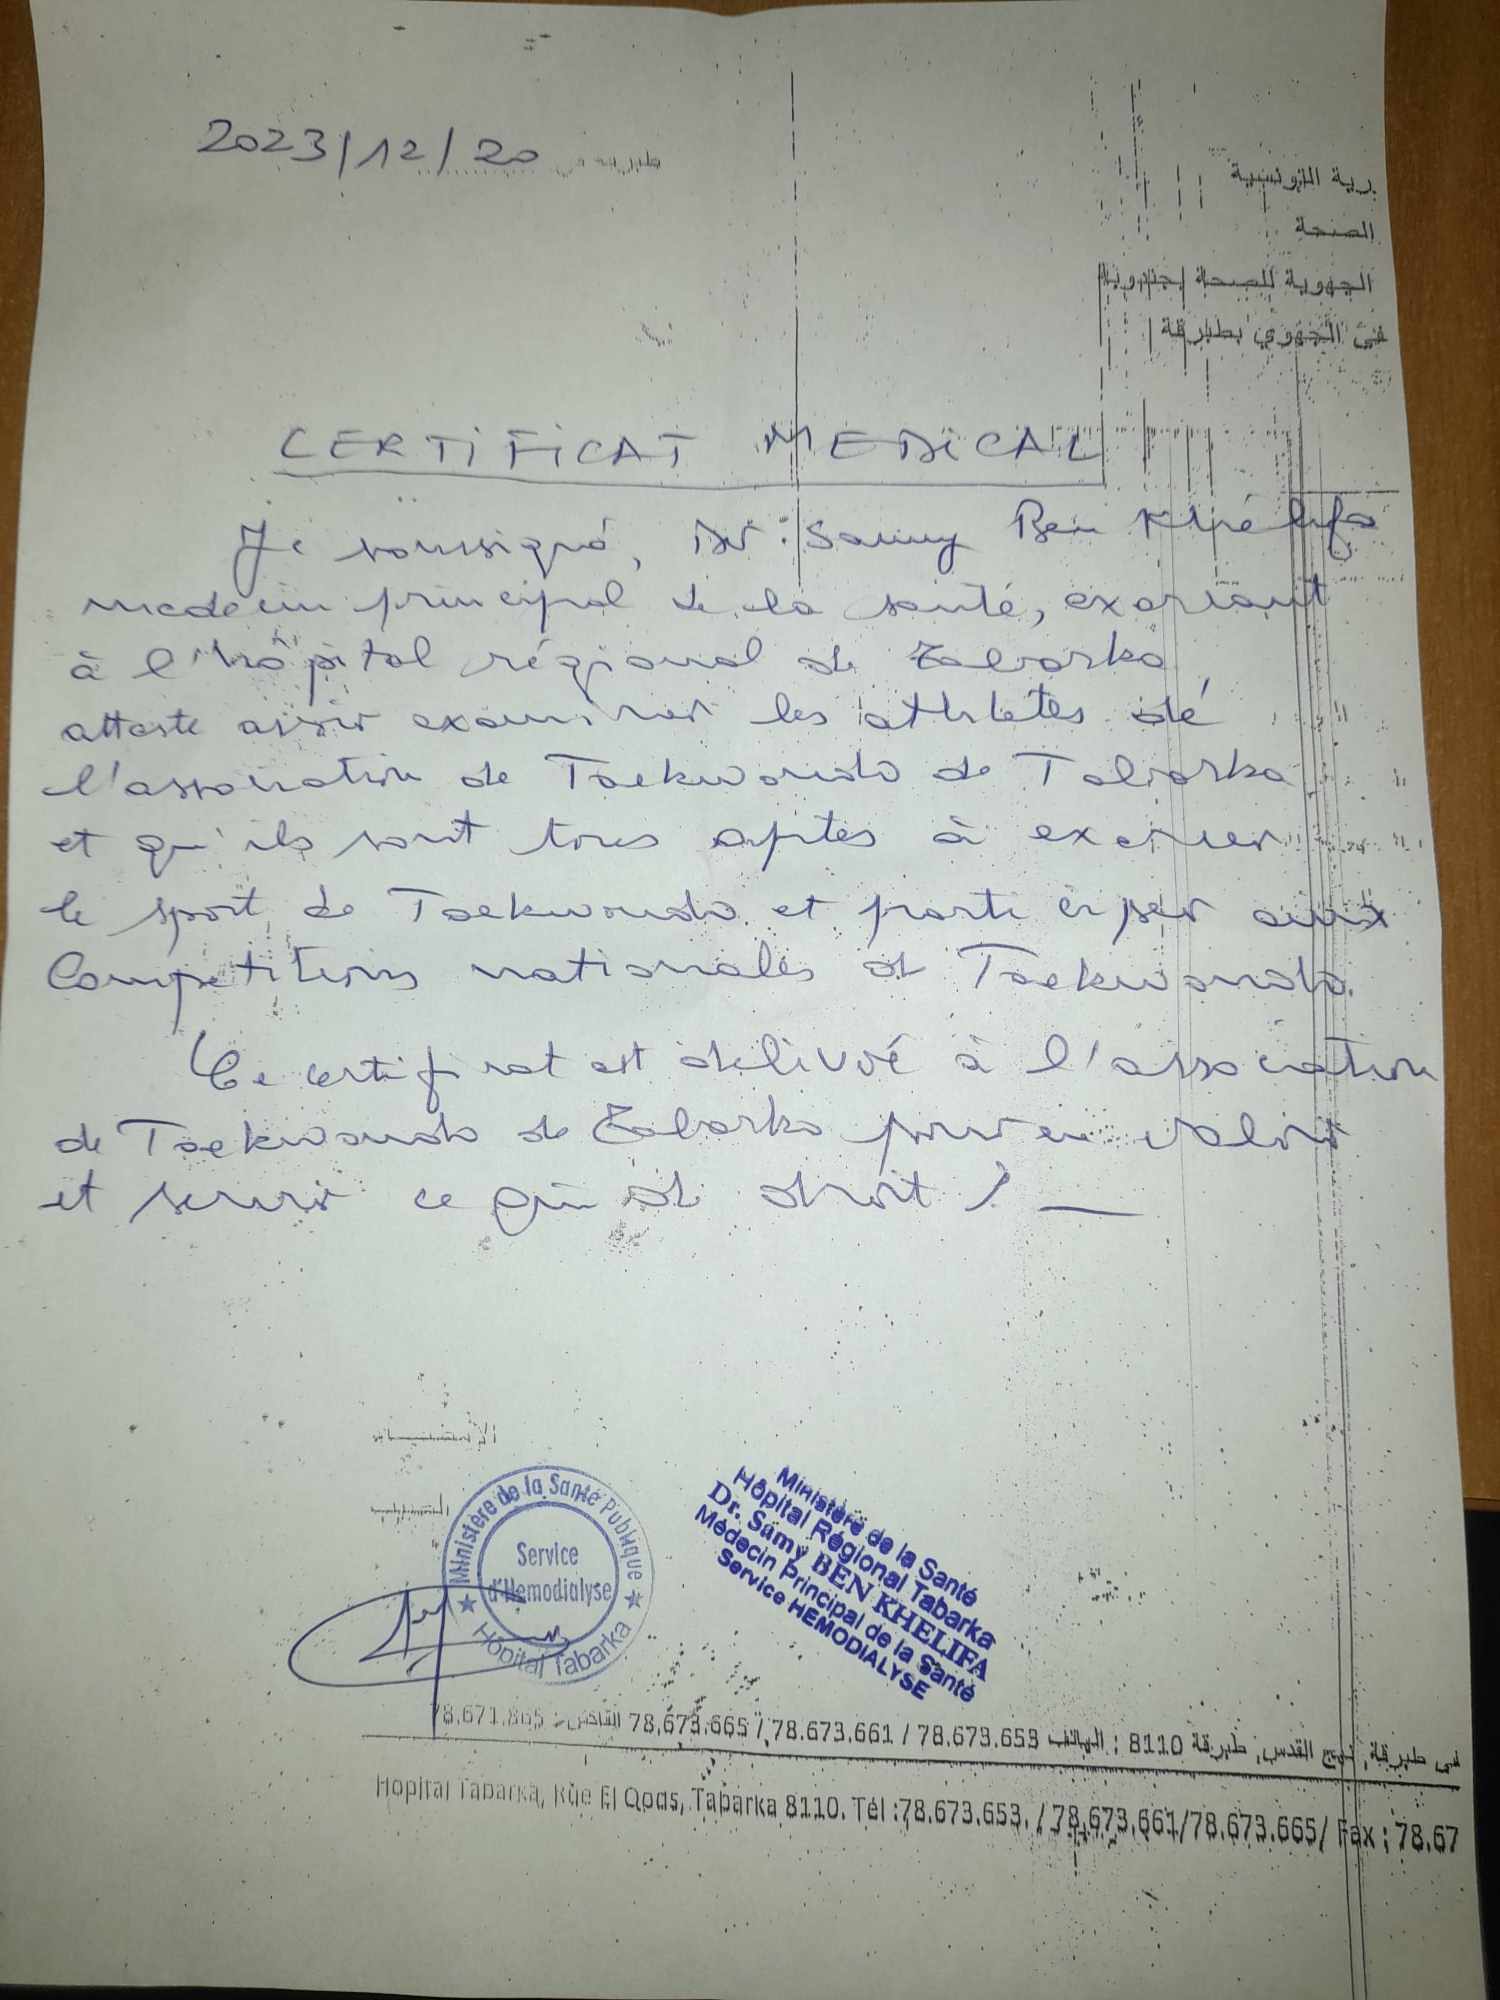 2023/12/20 طبرقة في
رية التونسية
الصحة
الجهوية للصحة بجندوبة
الجهوي بطبرقة
CERTIFICAT MEDICAL
Je soussigné, Dr: Samy Ben Khélifa
medecin principal de la santé, exerçant
à l'hôpital régional de Tabarka
atteste avoir examiner les athlètes de
l'association de Taekwondo de Tabarka
et qu'ils sont tous aptes à exercer
le sport de Taekwondo et participer aux
Compétitions nationales de Taekwondo.
Ce certificat est délivré à l'association
de Taekwondo de Tabarka pour en valoir
et servir ce qui de droit /. —
الإمضاء
الطبيب
Ministère de la Santé Publique
Service
d'Hemodialyse
Hôpital Tabarka
Ministère de la Santé
Hôpital Régional Tabarka
Dr. Samy BEN KHELIFA
Médecin Principal de la Santé
Service HEMODIALYSE
طبرقة, نهج القدس, طبرقة 8110 : الهاتف 78.673.653 / 78.673.661 / 78.673.665 الفاكس : 78.671.865
Hopital Tabarka, Rue El Qods, Tabarka 8110. Tél :78.673.653. / 78.673.661/78.673.665/ Fax : 78.67